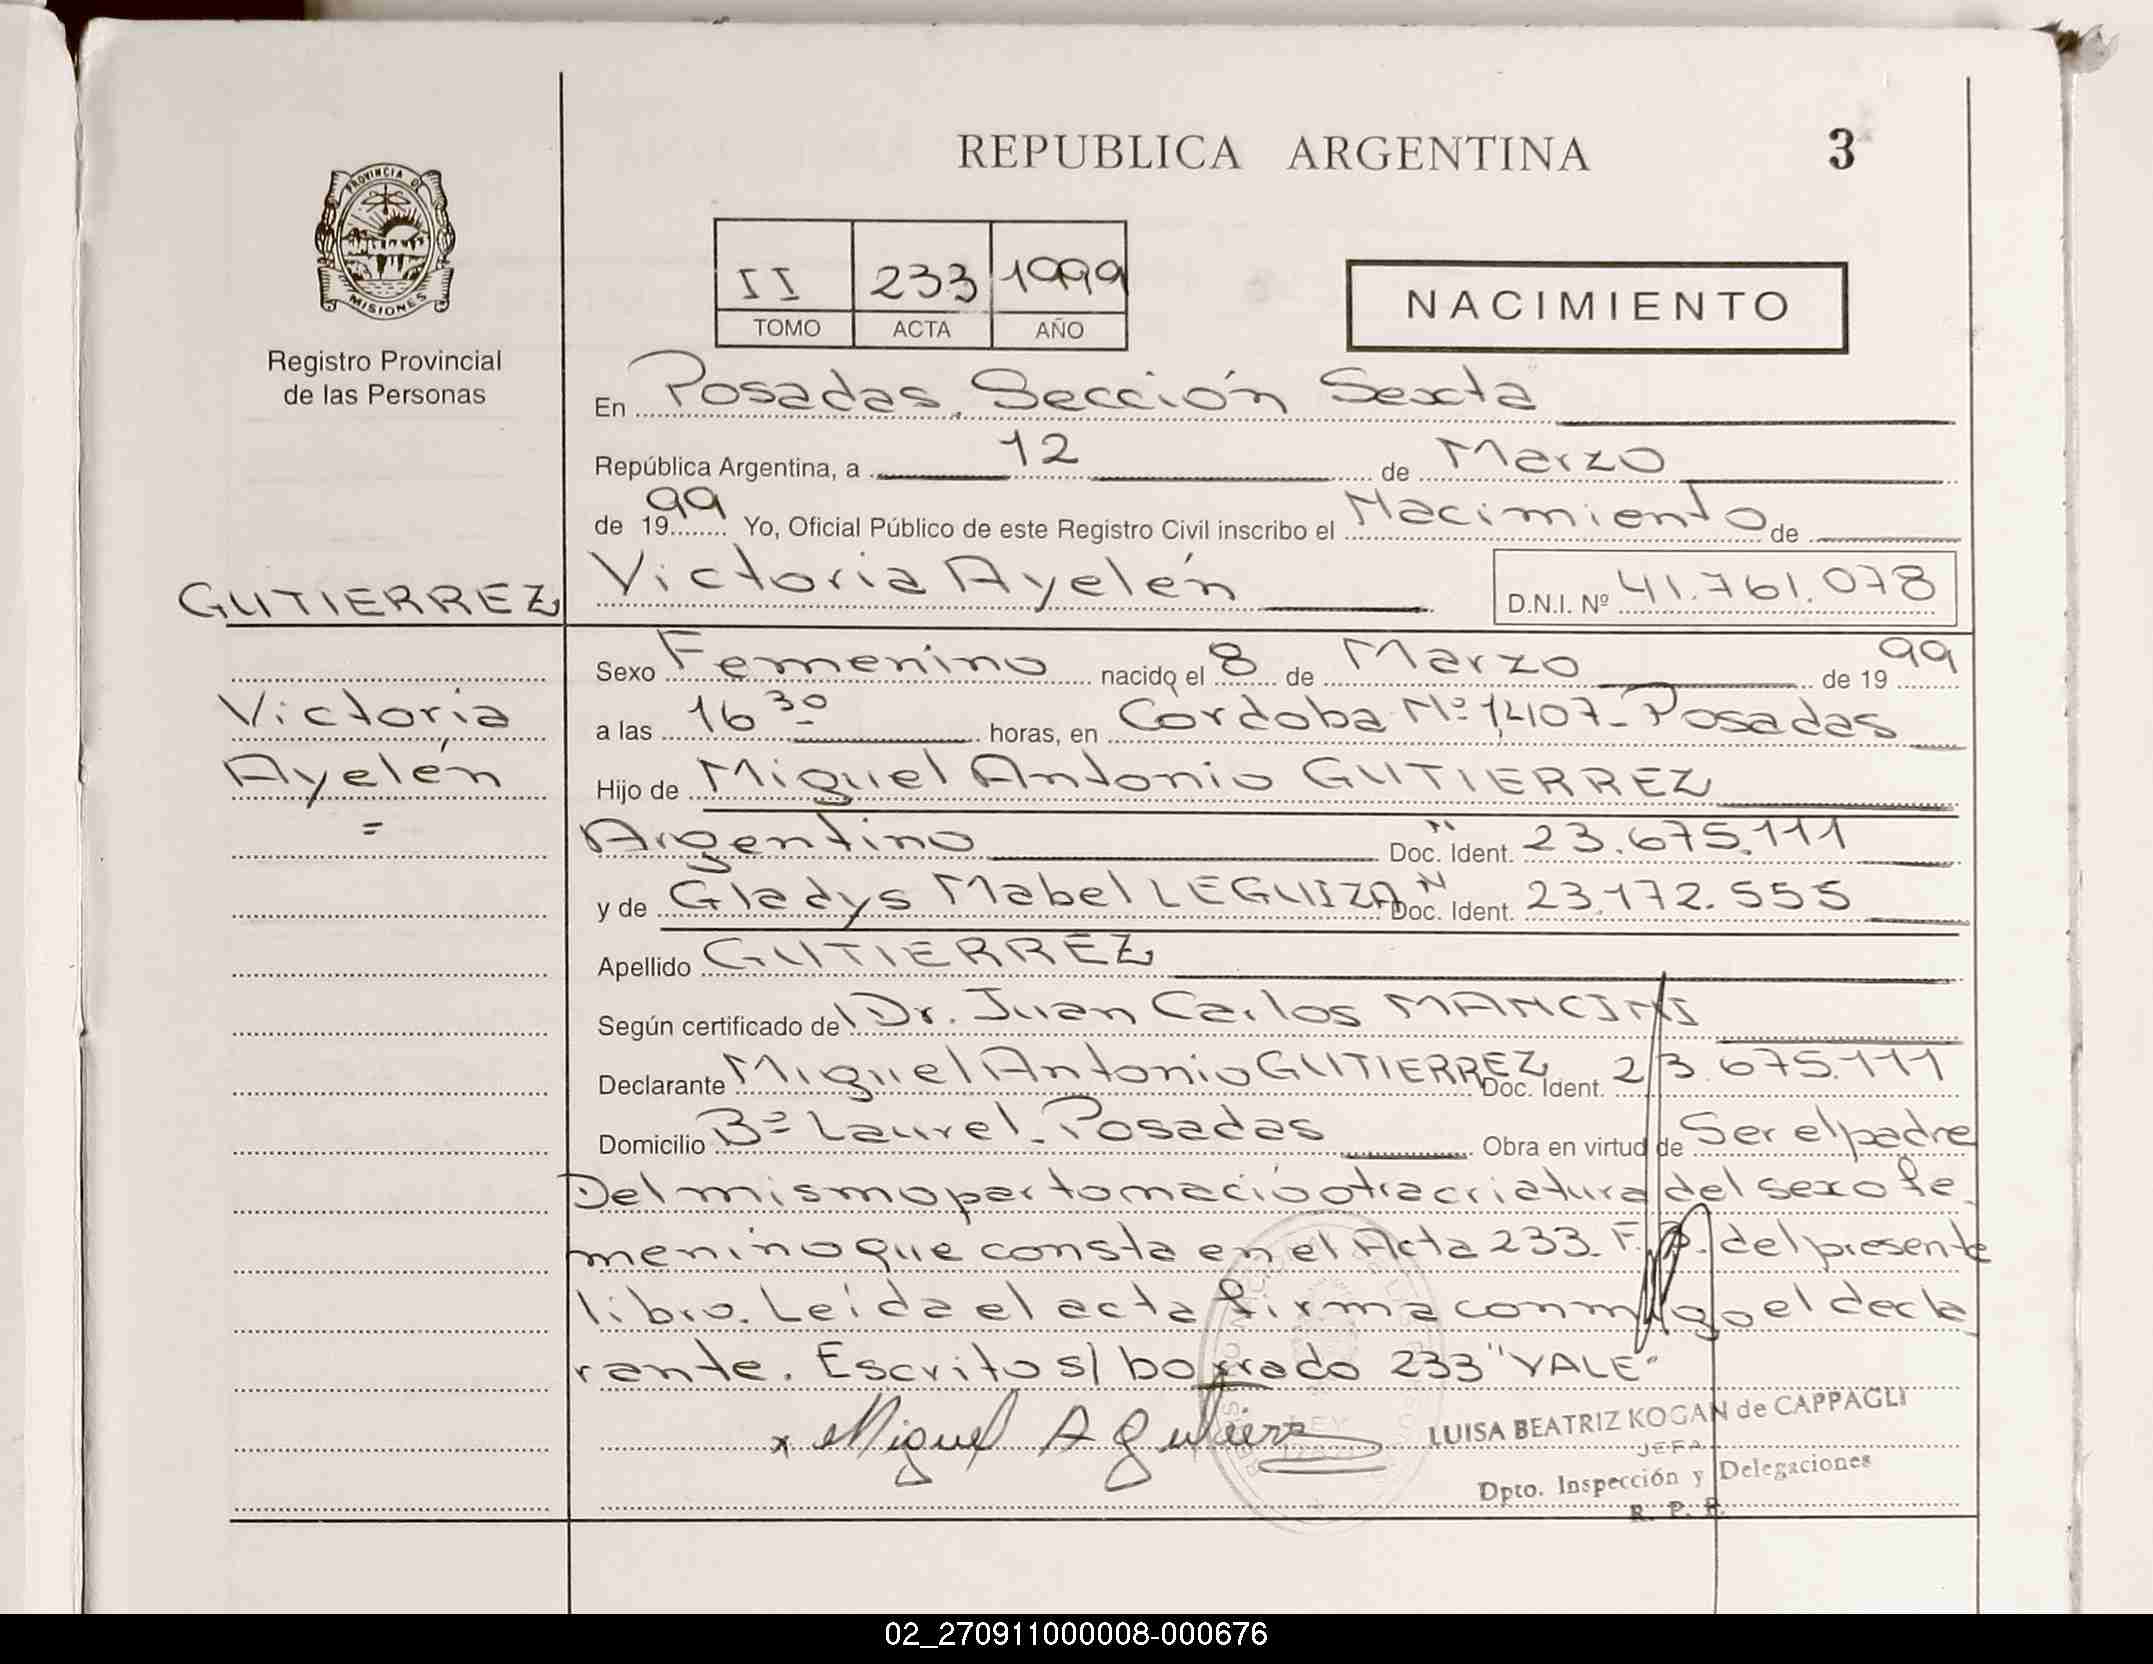 REPUBLICA ARGENTINA
3
PROVINCIA DE
MISIONES
Registro Provincial
de las Personas
II 233 1999
TOMO ACTA AÑO
NACIMIENTO
En Posadas, Sección Sexta
República Argentina, a 12 de Marzo
de 1999 Yo, Oficial Público de este Registro Civil inscribo el Nacimiento de
GUTIERREZ Victoria Ayelén D.N.I. Nº 41.761.078
Sexo Femenino nacido el 8 de Marzo de 1999
Victoria
a las 16 30 horas, en Córdoba Nº 1407- Posadas
Ayelén
Hijo de Miguel Antonio GUTIERREZ
=
Argentino Doc. Ident. 23.675.111
y de Gladys Mabel LEGUIZA N Doc. Ident. 23.172.555
Apellido GUTIERREZ
Según certificado de Dr. Juan Carlos MANCINI
Declarante Miguel Antonio GUTIERREZ Doc. Ident. 23.675.111
Domicilio Bº Laurel- Posadas Obra en virtud de Ser el padre
Del mismo parto nació otra criatura del sexo fe
menino que consta en el Acta 233. F. del presente
libro. Leída el acta firma conmigo el decla
rante. Escrito s/ borrado 233 "VALE"
x Miguel A Gutierrez
LUISA BEATRIZ KOGAN de CAPPAGLI
JEFA
Dpto. Inspección y Delegaciones
R. P. P.
02_270911000008-000676